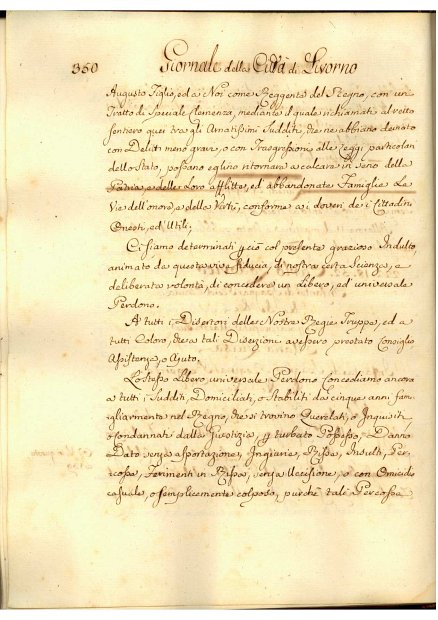 350 Giornale della Città di Livorno
Augusto Figlio, ed a Noi come Reggente del Regno, con un
Tratto di Speciale Clemenza, mediante il quale richiamati al retto
sentiero quei tra gli Amatissimi Sudditi, che ne abbiano deviato
con Delitti meno gravi, o con Trasgressioni alle Leggi particolari
dello Stato, possano eglino ritornare a calcare in seno della
Patria, e delle Loro afflitte, ed abbandonate Famiglie Le
Vie dell'onore, e della Virtù, conforme ai doveri de i Cittadini
Onesti, ed Utili.
Ci siamo determinati perciò col presente grazioso Indulto,
animato da questa viva fiducia, di nostra certa Scienza, e
deliberata volontà, di concedere un Libero, ed universale
Perdono.
A tutti i Disertori delle Nostre Regie Truppe, ed a
tutti Coloro, che a tali Diserzioni avessero prestato Consiglio
Assistenza, o Ajuto.
Lo stesso Libero, universale Perdono Concediamo ancora
a tutti i Sudditi, Domiciliati, o Stabiliti da cinque anni fami
gliarmente nel Regno, che si trovino Querelati, o Inquisiti,
o Condannati dalla Giustizia, per turbato Possesso, Danno
Dato senza asportazione, Ingiurie, Rissa, Insulti, Per
cosse, Ferimenti in Rissa, senza Uccisione, o con Omicidio
casuale, o semplicemente colposo, purchè tali Percosse